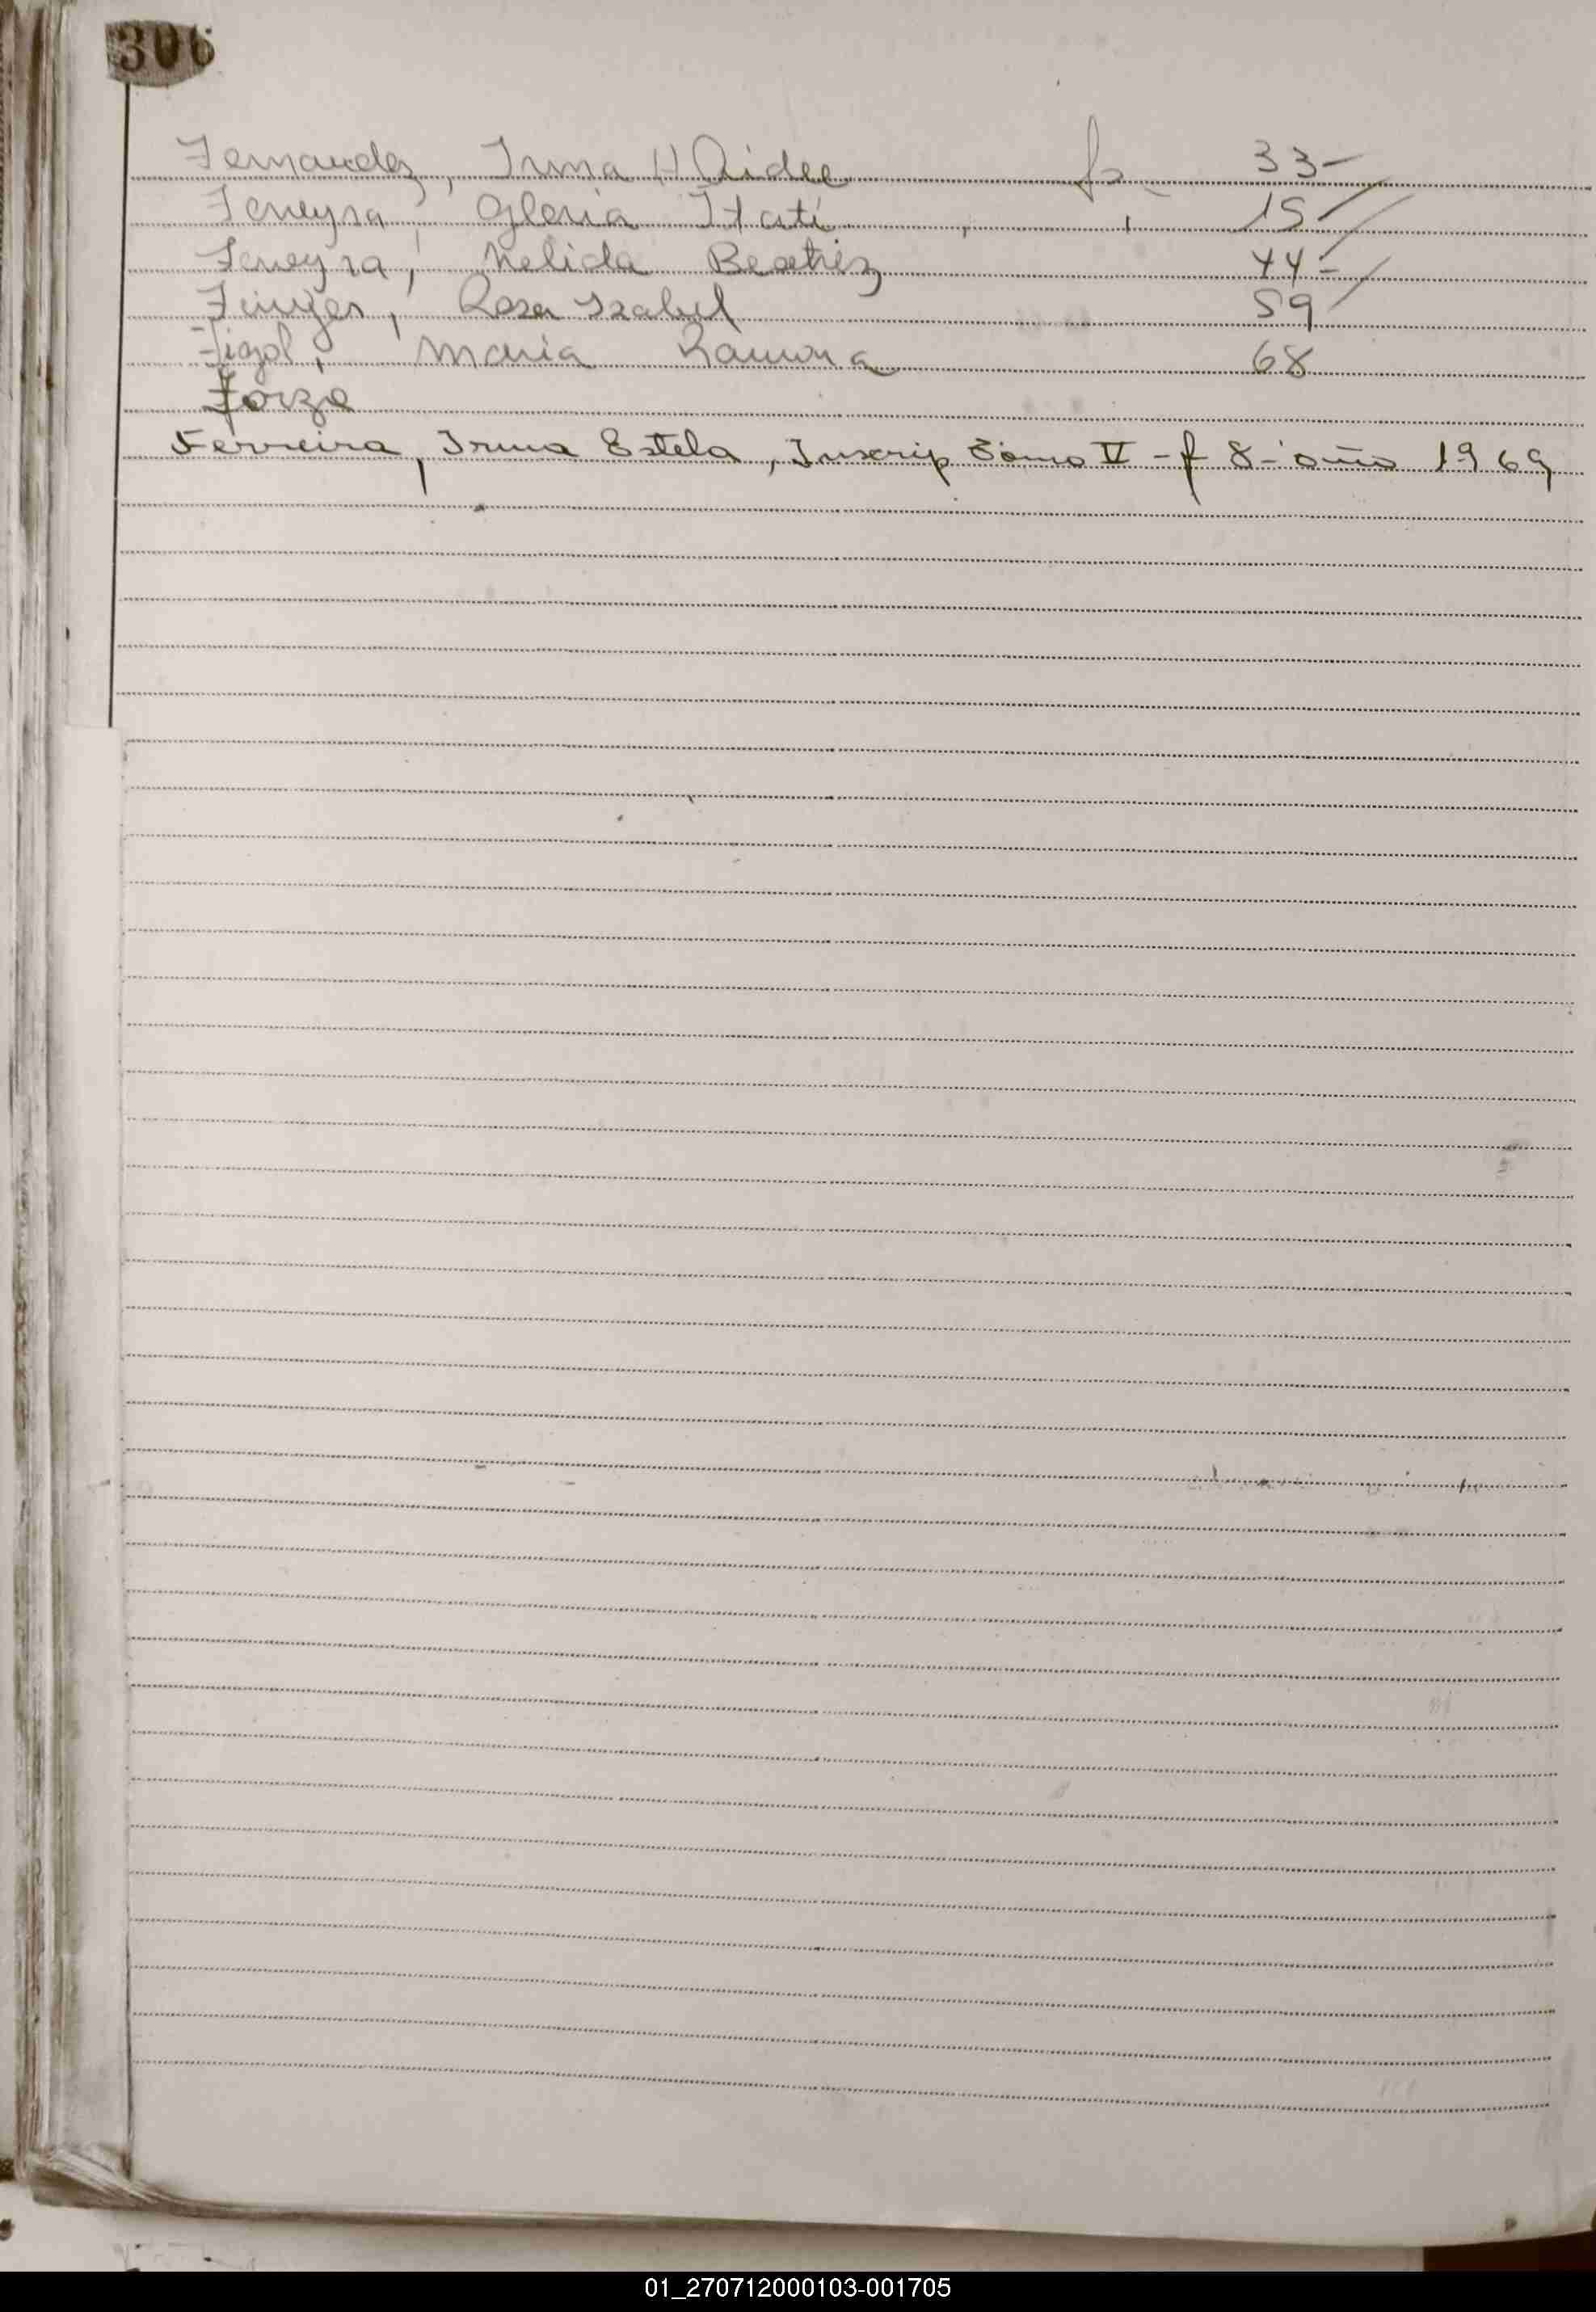 306
Fernandez, Irma H Aidee fs 33-
Ferreyra, Gloria Itatí , , 15
Ferreyra, Nelida Beatriz 44-
Rosa Isabel 59
Maria Ramona 68
Forze
Ferreira, Irma Estela, Inscrip Tomo IV - f 8- año 1969
01_270712000103-001705